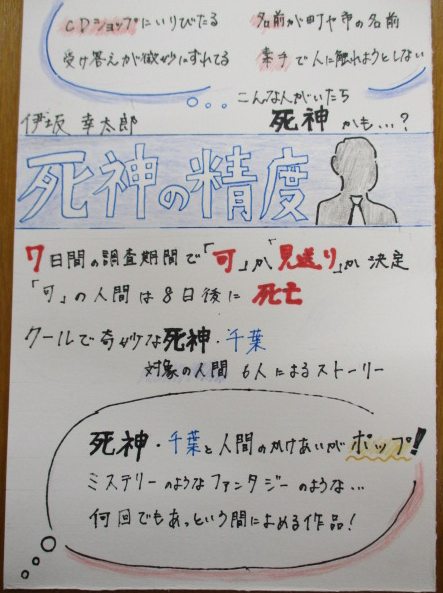 CDショップにいりびたる
名前が町や市の名前
受け答えが微妙にずれてる
素手で人に触れようとしない
こんな人がいたら
死神かも…?
伊坂 幸太郎
死神の精度
7日間の調査期間で「可」か「見送り」か 決定
「可」の人間は8日後に 死亡
クールで奇妙な死神・千葉
対象の人間 6人によるストーリー
死神・千葉と人間のかけあいがポップ!
ミステリーのようなファンタジーのような…
何回でもあっという間によめる作品!